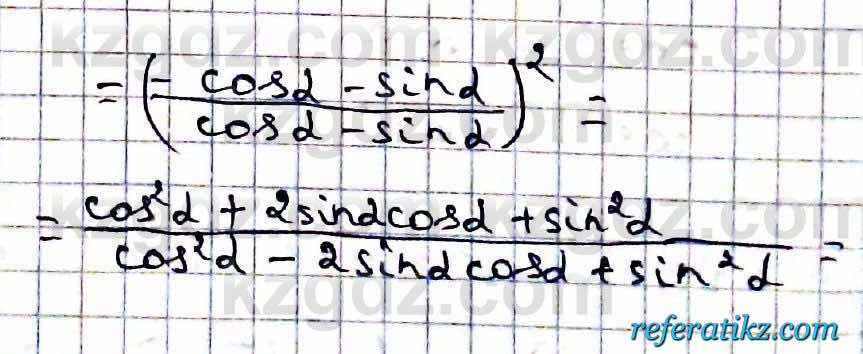 kzgdz.com kzgdz.com
= ( (- cosα - sinα) / (cosα - sinα) )² =
= (cos²α + 2sinαcosα + sin²α) / (cos²α - 2sinαcosα + sin²α) =
kzgdz.com kzgdz.com
referatikz.com